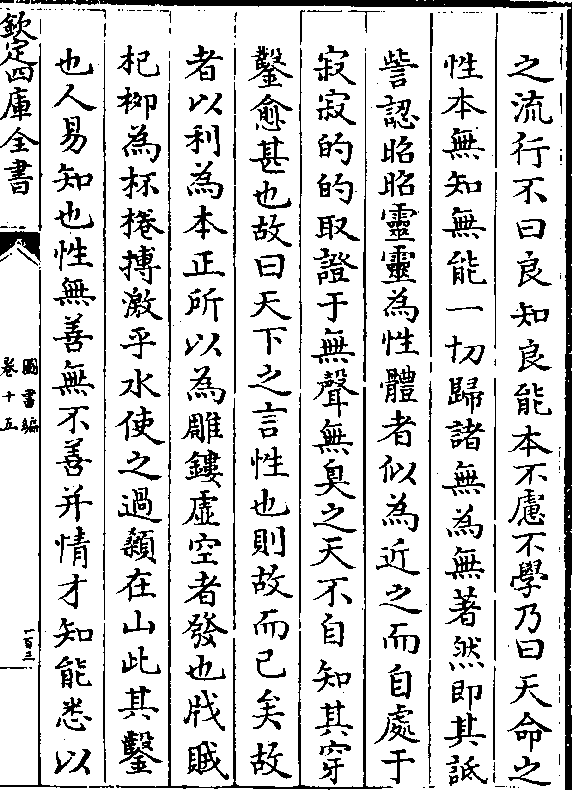 之流行不曰良知良能本不慮不學乃曰天命之
性本無知無能一切歸諸無為無著然即其詆
訾認昭昭靈靈為性體者似為近之而自處于
寂寂的的取證于無聲無臭之天不自知其穿
鑿愈甚也故曰天下之言性也則故而已矣故
者以利為本正所以為雕鏤虛空者發也戕賊
杞柳為杯棬搏激乎水使之過顙在山此其鑿
也人易知也性無善無不善并情才知能悉以
欽定四庫全書
圖書編
卷十五
一百三